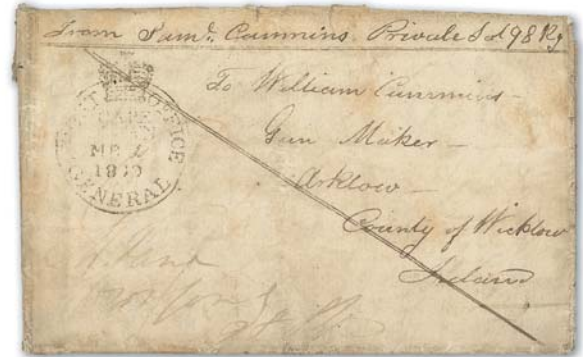 From Saml. Cummins. Private Sol 98 Rg
To William Cummins
Gun Maker
Arklow
County of Wicklow
Ireland
POST OFFICE
CAPE
GENERAL